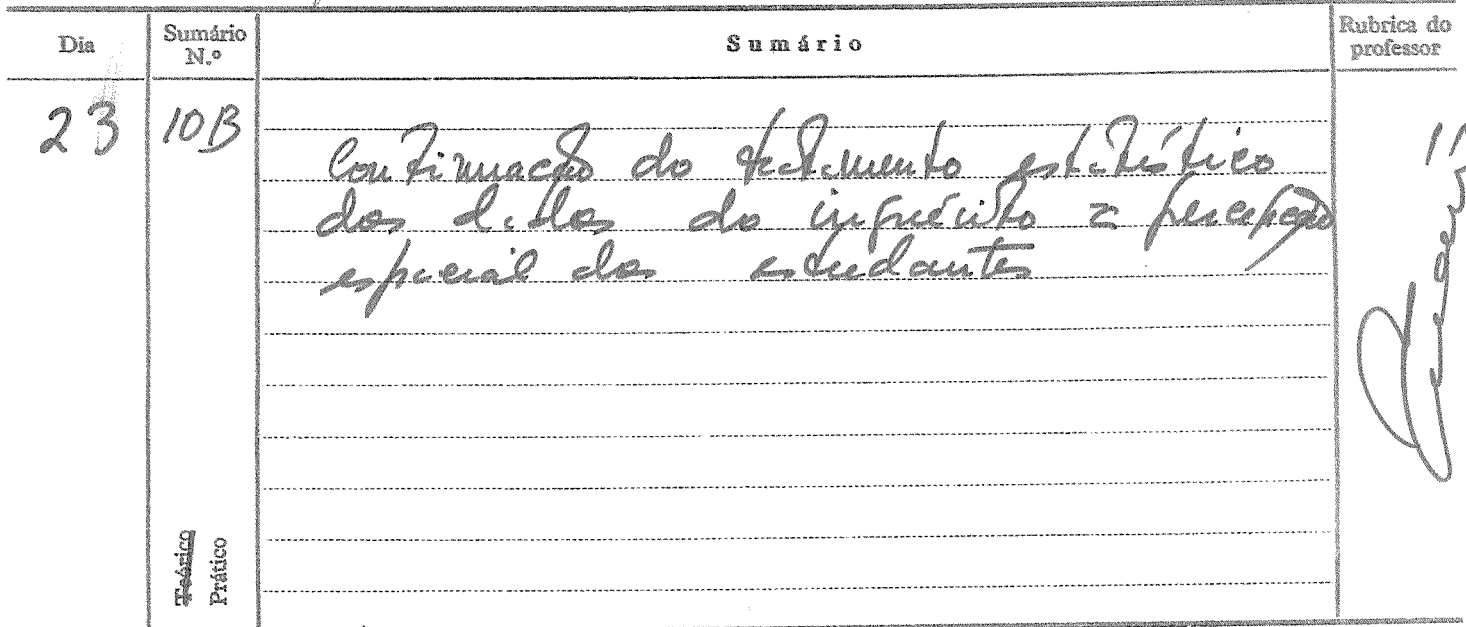 Dia
Sumário N.º
Sumário
Rubrica do professor
23
10B
Continuação do tratamento estatístico
dos dados do inquérito à percepção
espacial dos estudantes
Teórico
Prático